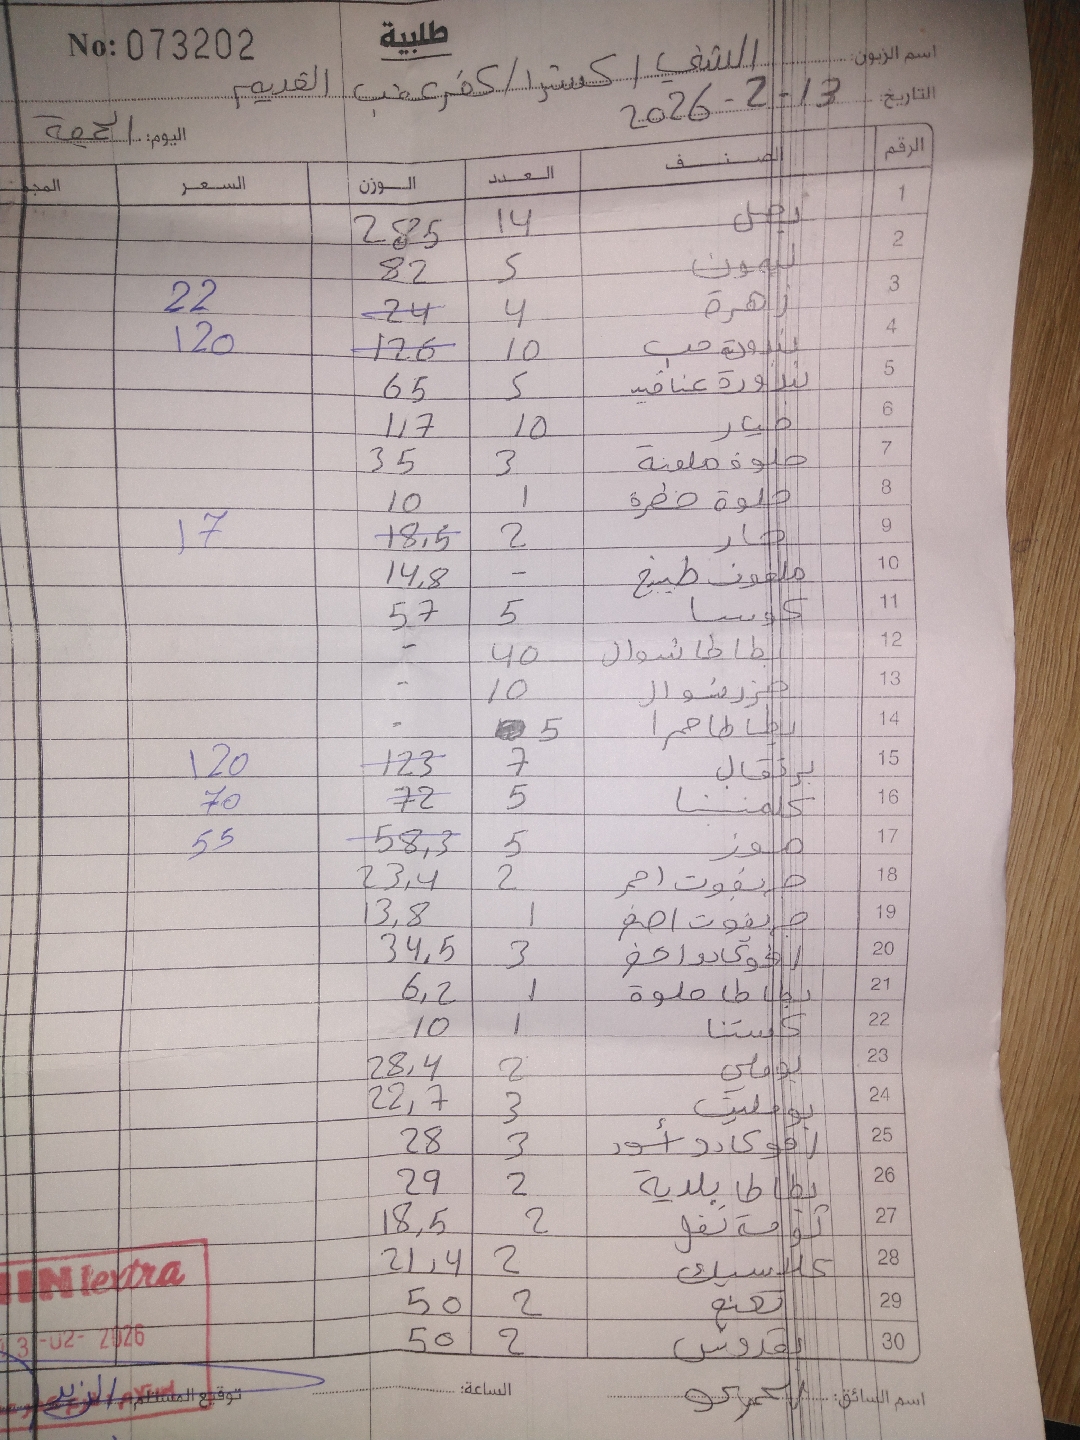 No: 073202
طلبية
اسم الزبون: الشفي / كسترا / كفر عقب القديم
التاريخ: 13-2-2026
اليوم: الجمعة
الرقم الصنف العدد الوزن السعر
1 بصل 14 285
2 ليمون 5 82
3 زهرة 4 24 22
4 بندورة حب 10 126 120
5 بندورة عناقيد 5 65
6 خيار 10 117
7 حلوة ملونة 3 35
8 حلوة خضرة 1 10
9 حار 2 18,5 17
10 ملفوف طبيخ - 14,8
11 كوسا 5 57
12 بطاطا شوال 40 -
13 جزر شوال 10 -
14 بطاطا حمرا 5 -
15 برتقال 7 123 120
16 كلمنتينا 5 72 70
17 موز 5 58,3 55
18 جريفوت احمر 2 23,4
19 جريفوت اصفر 1 13,8
20 افوكادو اخضر 3 34,5
21 بطاطا حلوة 1 6,2
22 كستنا 1 10
23 بوملي 2 28,4
24 بومليت 3 22,7
25 افوكادو أسود 3 28
26 بطاطا بلدية 2 29
27 2 18,5
28 كلاسيك 2 21,4
29 نعنع 2 50
30 بقدونس 2 50
extra
3-02-2026
اسم السائق:
الساعة:
توقيع المستلم: